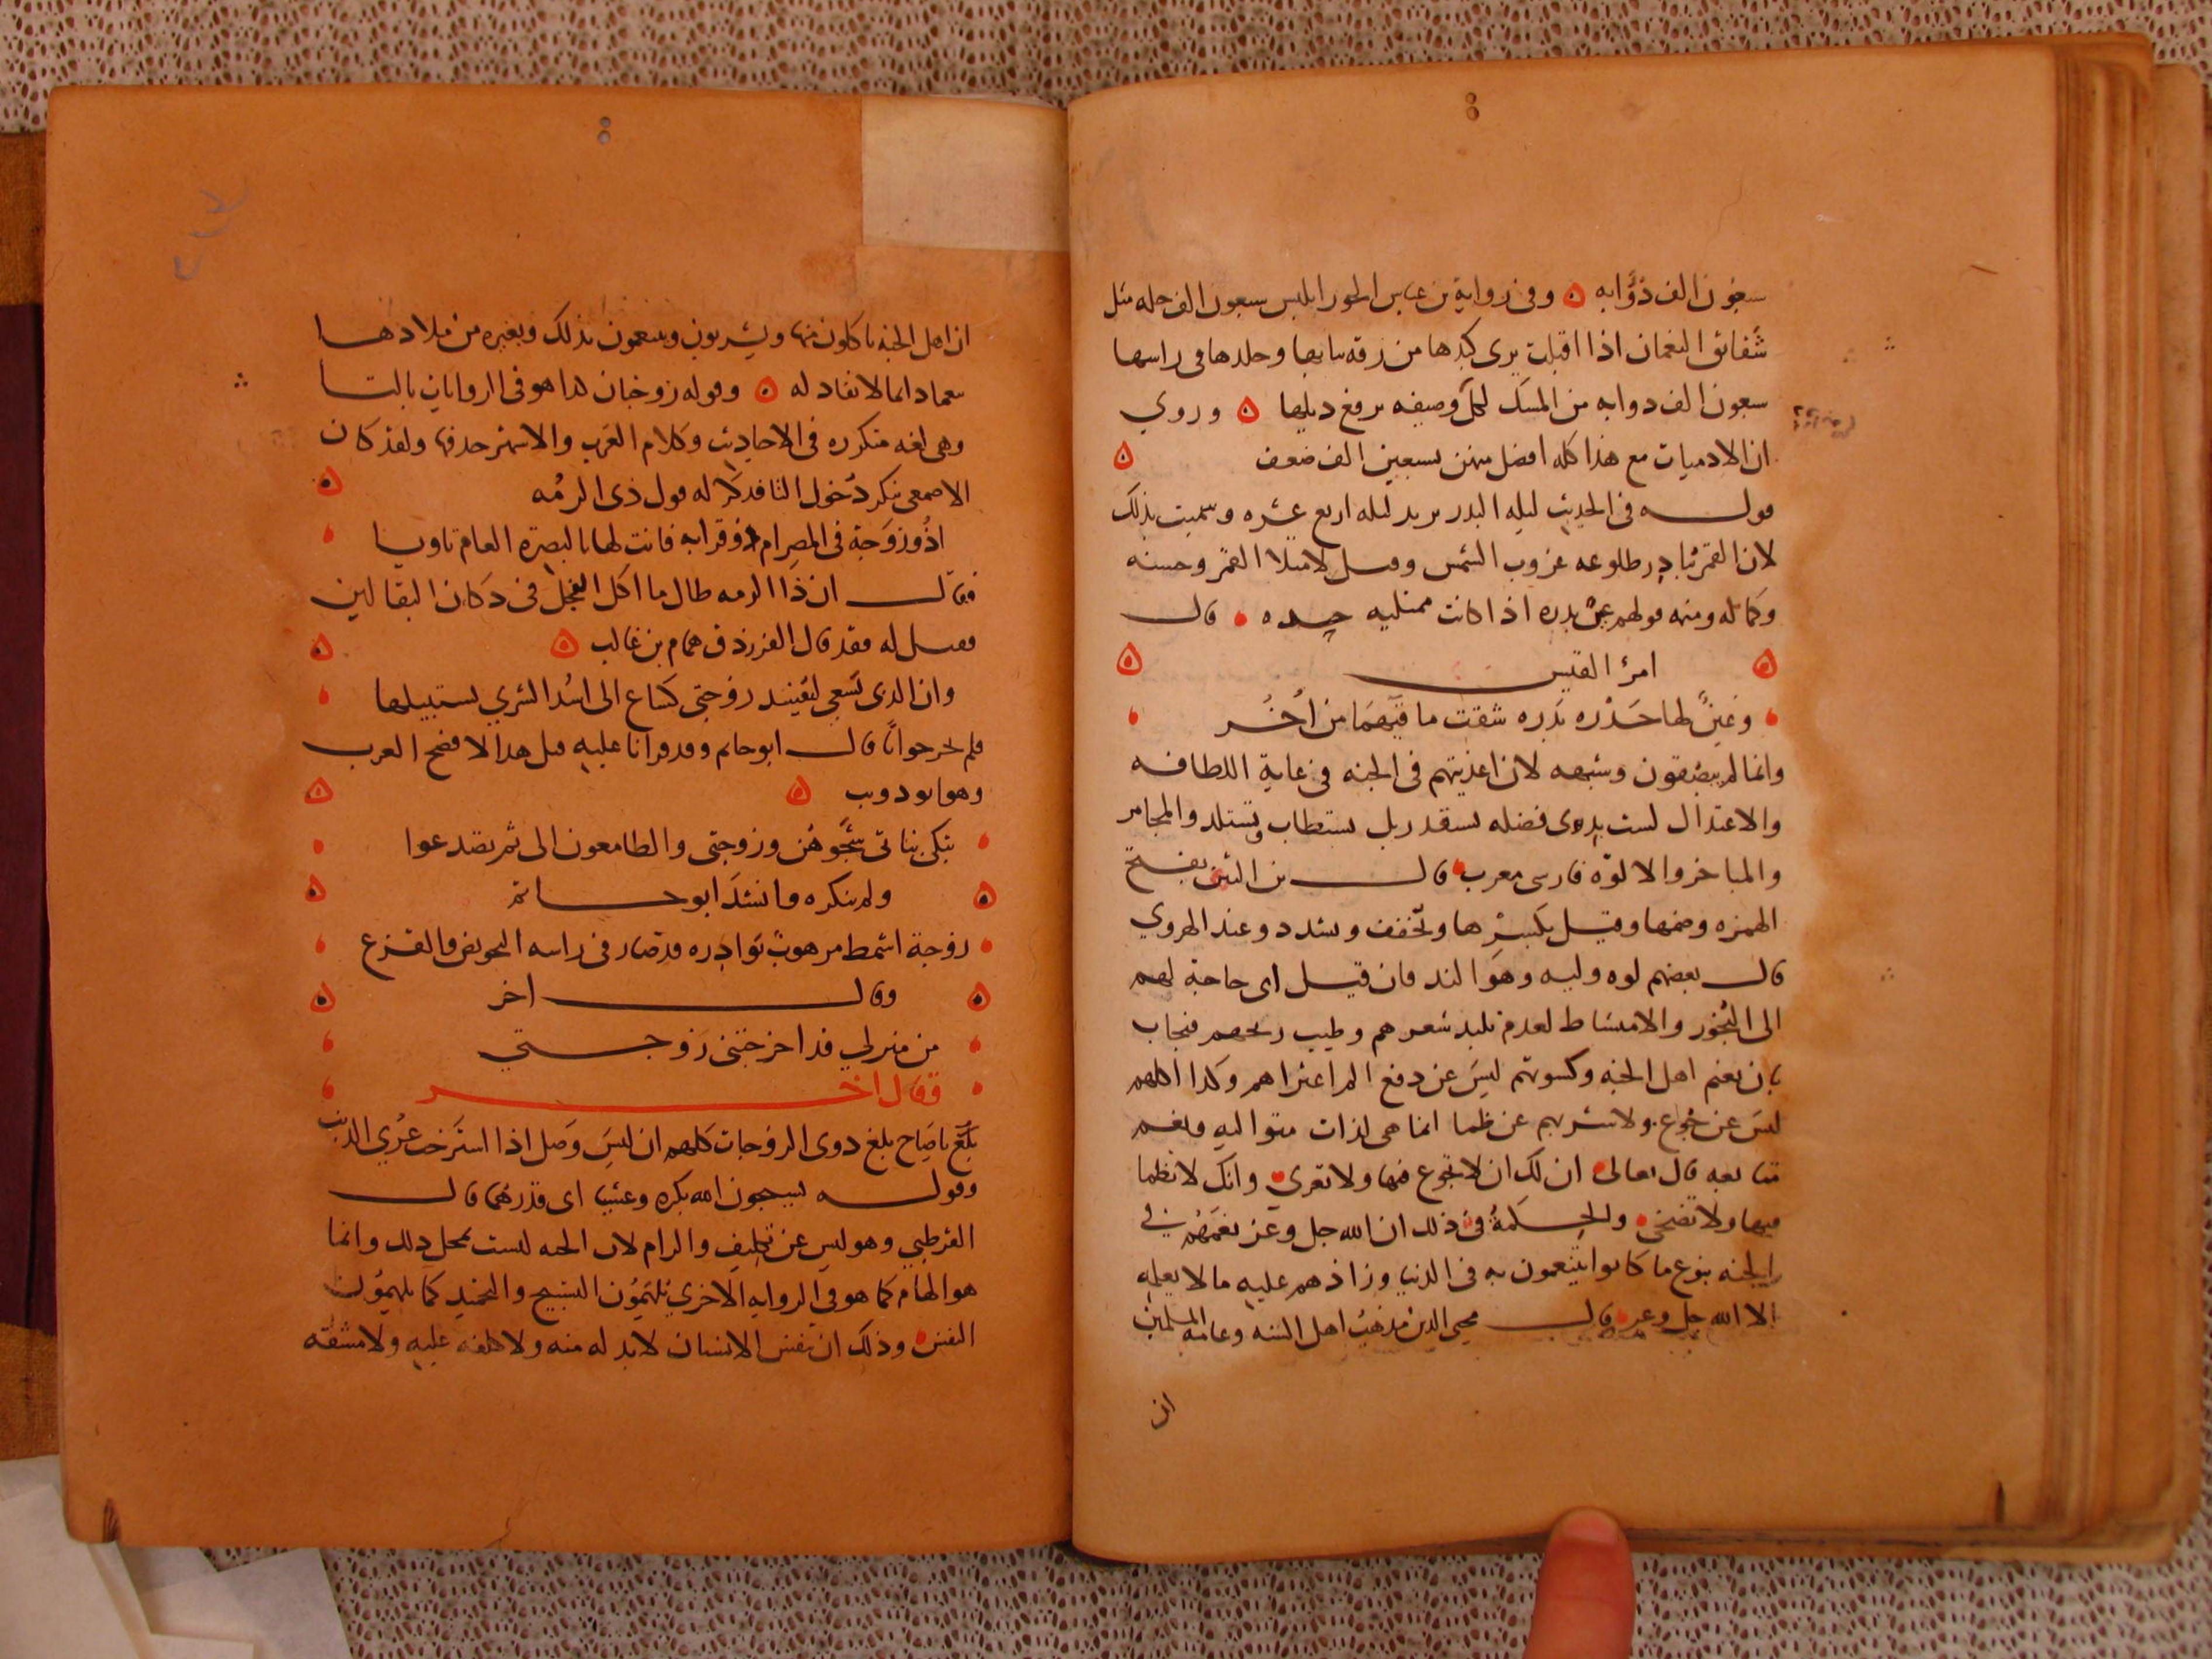 سبعون الف ذؤابه ۞ وفي رواية بن عباس الحورا يلبس سبعون الف حله مثل
شقائق النعمان اذا اقبلت يرى كبدها من رقه ثيابها وجلدها في راسها
سبعون الف دوابه من المسك لكل وصيفه ترفع ديلها ۞ وروي
ان الادميات مع هذا كله افضل منهن بسبعين الف ضعف ۞
قوله في الحديث ليله البدر يريد ليله اربع عشره وسميت بذلك
لان القمر يبادر طلوعه غروب الشمس وقيل لامتلا القمر وحسنه
وكماله ومنه قولهم عين بدره اذا كانت ممتليه حدره قال
۞ امرئ القيس ۞
وعين لها حدره بدره شقت ماقيهما من اخر
وانما لم يبصقون وشبهه لان اغذيتهم في الجنه في غاية اللطافه
والاعتدال ليست بدوى فضله تستقدر بل تستطاب وتستلد والمجامر
والمباخر والالوه فارسى معرب قال بن التين بفتح
الهمزه وضمها وقيل بكسرها وتخفف وتشدد وعند الهروي
قال بعضهم لوه وليه وهو الند فان قيل اى حاجة لهم
الى البخور والامتشاط لعدم تلبد شعرهم وطيب ريحهم فيجاب
بان نعيم اهل الجنه وكسوتهم ليس عن دفع الم اعتراهم وكدا اكلهم
ليس عن جوع ولا شربهم عن ظما انما هى لذات متواليه ونعيم
متتابعه قال تعالى ان لك ان لا تجوع فيها ولا تعرى وانك لا تظما
فيها ولا تضحى والحكمة في ذلك ان الله جل وعز نعمهم في
الجنه بنوع ما كانوا يتنعمون به في الدنيا وزادهم عليه ما لا يعلمه
الا الله جل وعز قال محيى الدين مذهب اهل السنه وعامه المسلمين
ان
ان اهل الجنه ياكلون منها ويشربون ويتنعمون بذلك وبغيره من ملادها
نعما دائما لا نفاد له ۞ وقوله زوجتان هدا هو في الروايات بالتا
وهى لغه متكرره في الاحاديث وكلام العرب والاشهر حدفها ولقد كان
الاصمعى ينكر دخول التا فدكر له قول ذى الرمه ۞
اذو زوجة في المصر ام ذو قرابه فانت لها بالبصره العام ثاويا
فقال ان ذا الرمه طال ما اكل البقل في دكان البقالين
فقيل له فقد قال الفرزدق همام بن غالب ۞ ۞
وان الدى يسعى ليفسد زوجتى كساع الى اسد الشرى يستبيلها
فلم يحر جوابا قال ابو حاتم وقد قرانا عليه قبل هدا لافصح العرب
وهو ابو دويب ۞ ۞
تبكى بناتى شجوهن وزوجتى والطامعون الى ثم تصدعوا
۞ ولم ينكره وانشد ابو حاتم ۞
زوجة اشمط مرهوب بوادره قد صار في راسه التخويص والقزع
۞ وقال اخر ۞
من منزلي قد اخرجتني زوجتي
وقال اخر
بلغ يا صاح بلغ دوى الزوجات كلهم ان ليس وصل اذا استرخت عرى الدنب
وقوله يسبحون الله بكره وعشيا اى قدرهما قال
القرطبي وهو ليس عن تكليف والزام لان الجنه ليست بمحل دلك وانما
هو الهام كما هو في الروايه الاخرى يلهمون التسبيح والتحميد كما يلهمون
النفس وذلك ان تنفس الانسان لابد له منه ولا كلفه عليه ولا مشقه